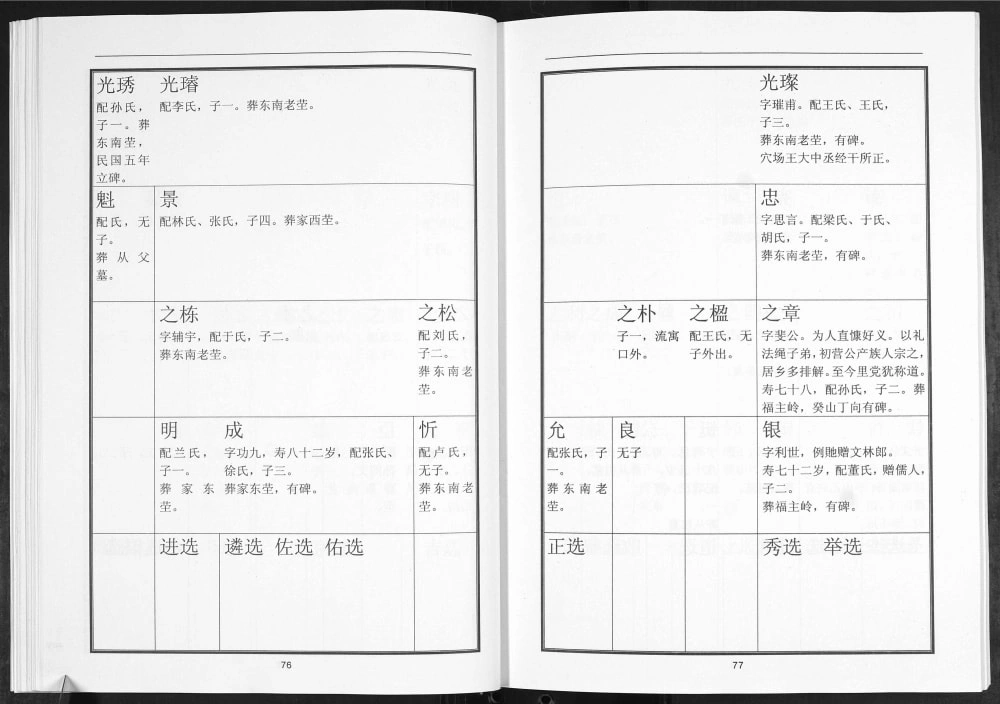 光琇
配孙氏，
子一。葬
东南茔，
民国五年
立碑。
光璿
配李氏，子一。葬东南老茔。
魁
配氏，无
子。
葬从父
墓。
景
配林氏、张氏，子四。葬家西茔。
之栋
字辅宇，配于氏，子二。
葬东南老茔。
之松
配刘氏，
子二。
葬东南老
茔。
明
配兰氏，
子一。
葬家东
茔。
成
字功九，寿八十二岁，配张氏、
徐氏，子三。
葬家东茔，有碑。
忻
配卢氏，
无子。
葬东南老
茔。
进选
遴选 佐选 佑选
76
光璨
字璀甫。配王氏、王氏，
子三。
葬东南老茔，有碑。
穴场王大中丞经干所正。
忠
字思言。配梁氏、于氏、
胡氏，子一。
葬东南老茔，有碑。
之朴
子一，流寓
口外。
之楹
配王氏，无
子外出。
之章
字斐公。为人直慷好义。以礼
法绳子弟，初营公产族人宗之，
居乡多排解。至今里党犹称道。
寿七十八，配孙氏，子二。葬
福主岭，癸山丁向有碑。
允
配张氏，子
一。
葬东南老
茔。
良
无子
银
字利世，例貤赠文林郎。
寿七十二岁，配董氏，赠儒人，
子二。
葬福主岭，有碑。
正选
秀选 举选
77